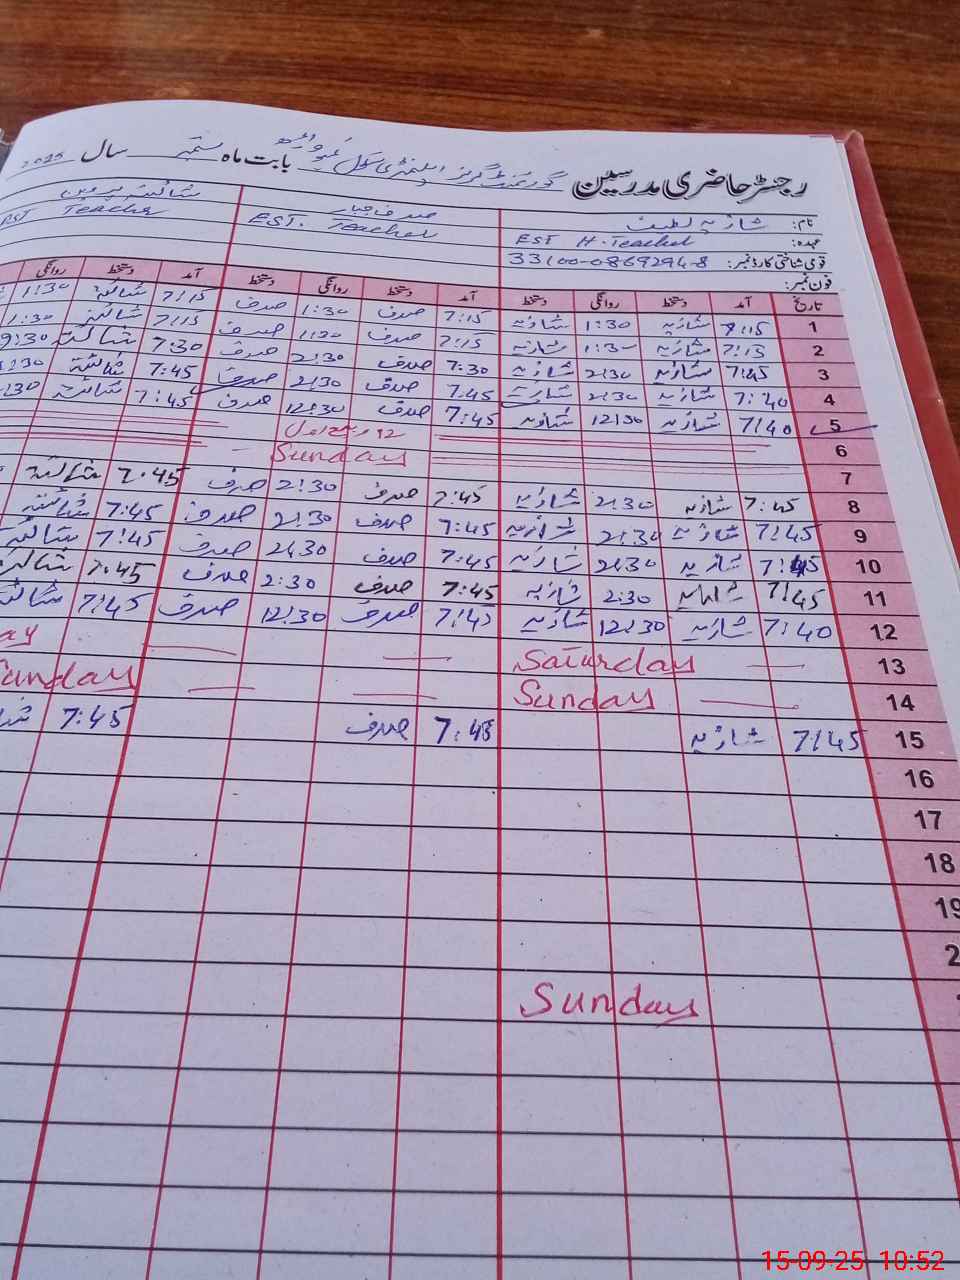 رجسٹر حاضری مدرسین گورنمنٹ گرلز ایلیمنٹری سکول بابت ماہ ستمبر سال 2025
نام: شازیہ لطیف صدف جبار شائستہ پروین
عہدہ: EST H. Teacher EST. Teacher EST Teacher
قومی شناختی کارڈ نمبر: 33100-0869294-8
فون نمبر:
تاریخ آمد دستخط روانگی دستخط آمد دستخط روانگی دستخط آمد دستخط روانگی
1 7:15 شازیہ 1:30 شازیہ 7:15 صدف 1:30 صدف 7:15 شائستہ 1:30
2 7:15 شازیہ 1:30 شازیہ 7:15 صدف 1:30 صدف 7:15 شائستہ 1:30
3 7:45 شازیہ 2:30 شازیہ 7:30 صدف 2:30 صدف 7:30 شائستہ
4 7:40 شازیہ 2:30 شازیہ 7:45 صدف 2:30 صدف 7:45 شائستہ 2:30
5 7:40 شازیہ 12:30 شازیہ 7:45 صدف 12:30 صدف 7:45 شائستہ
6 12 ربیع اول
7 Sunday
8 7:45 شازیہ 2:30 شازیہ 7:45 صدف 2:30 صدف 7:45 شائستہ
9 7:45 شازیہ 2:30 شازیہ 7:45 صدف 2:30 صدف 7:45 شائستہ
10 7:45 شازیہ 2:30 شازیہ 7:45 صدف 2:30 صدف 7:45 شائستہ
11 7:45 شازیہ 2:30 شازیہ 7:45 صدف 2:30 صدف 7:45 شائستہ
12 7:40 شازیہ 12:30 شازیہ 7:45 صدف 12:30 صدف 7:45 شائستہ
13 Saturday
14 Sunday Sunday
15 7:45 شازیہ 7:45 صدف 7:45
16
17
18
19
Sunday
15-09-25 10:52